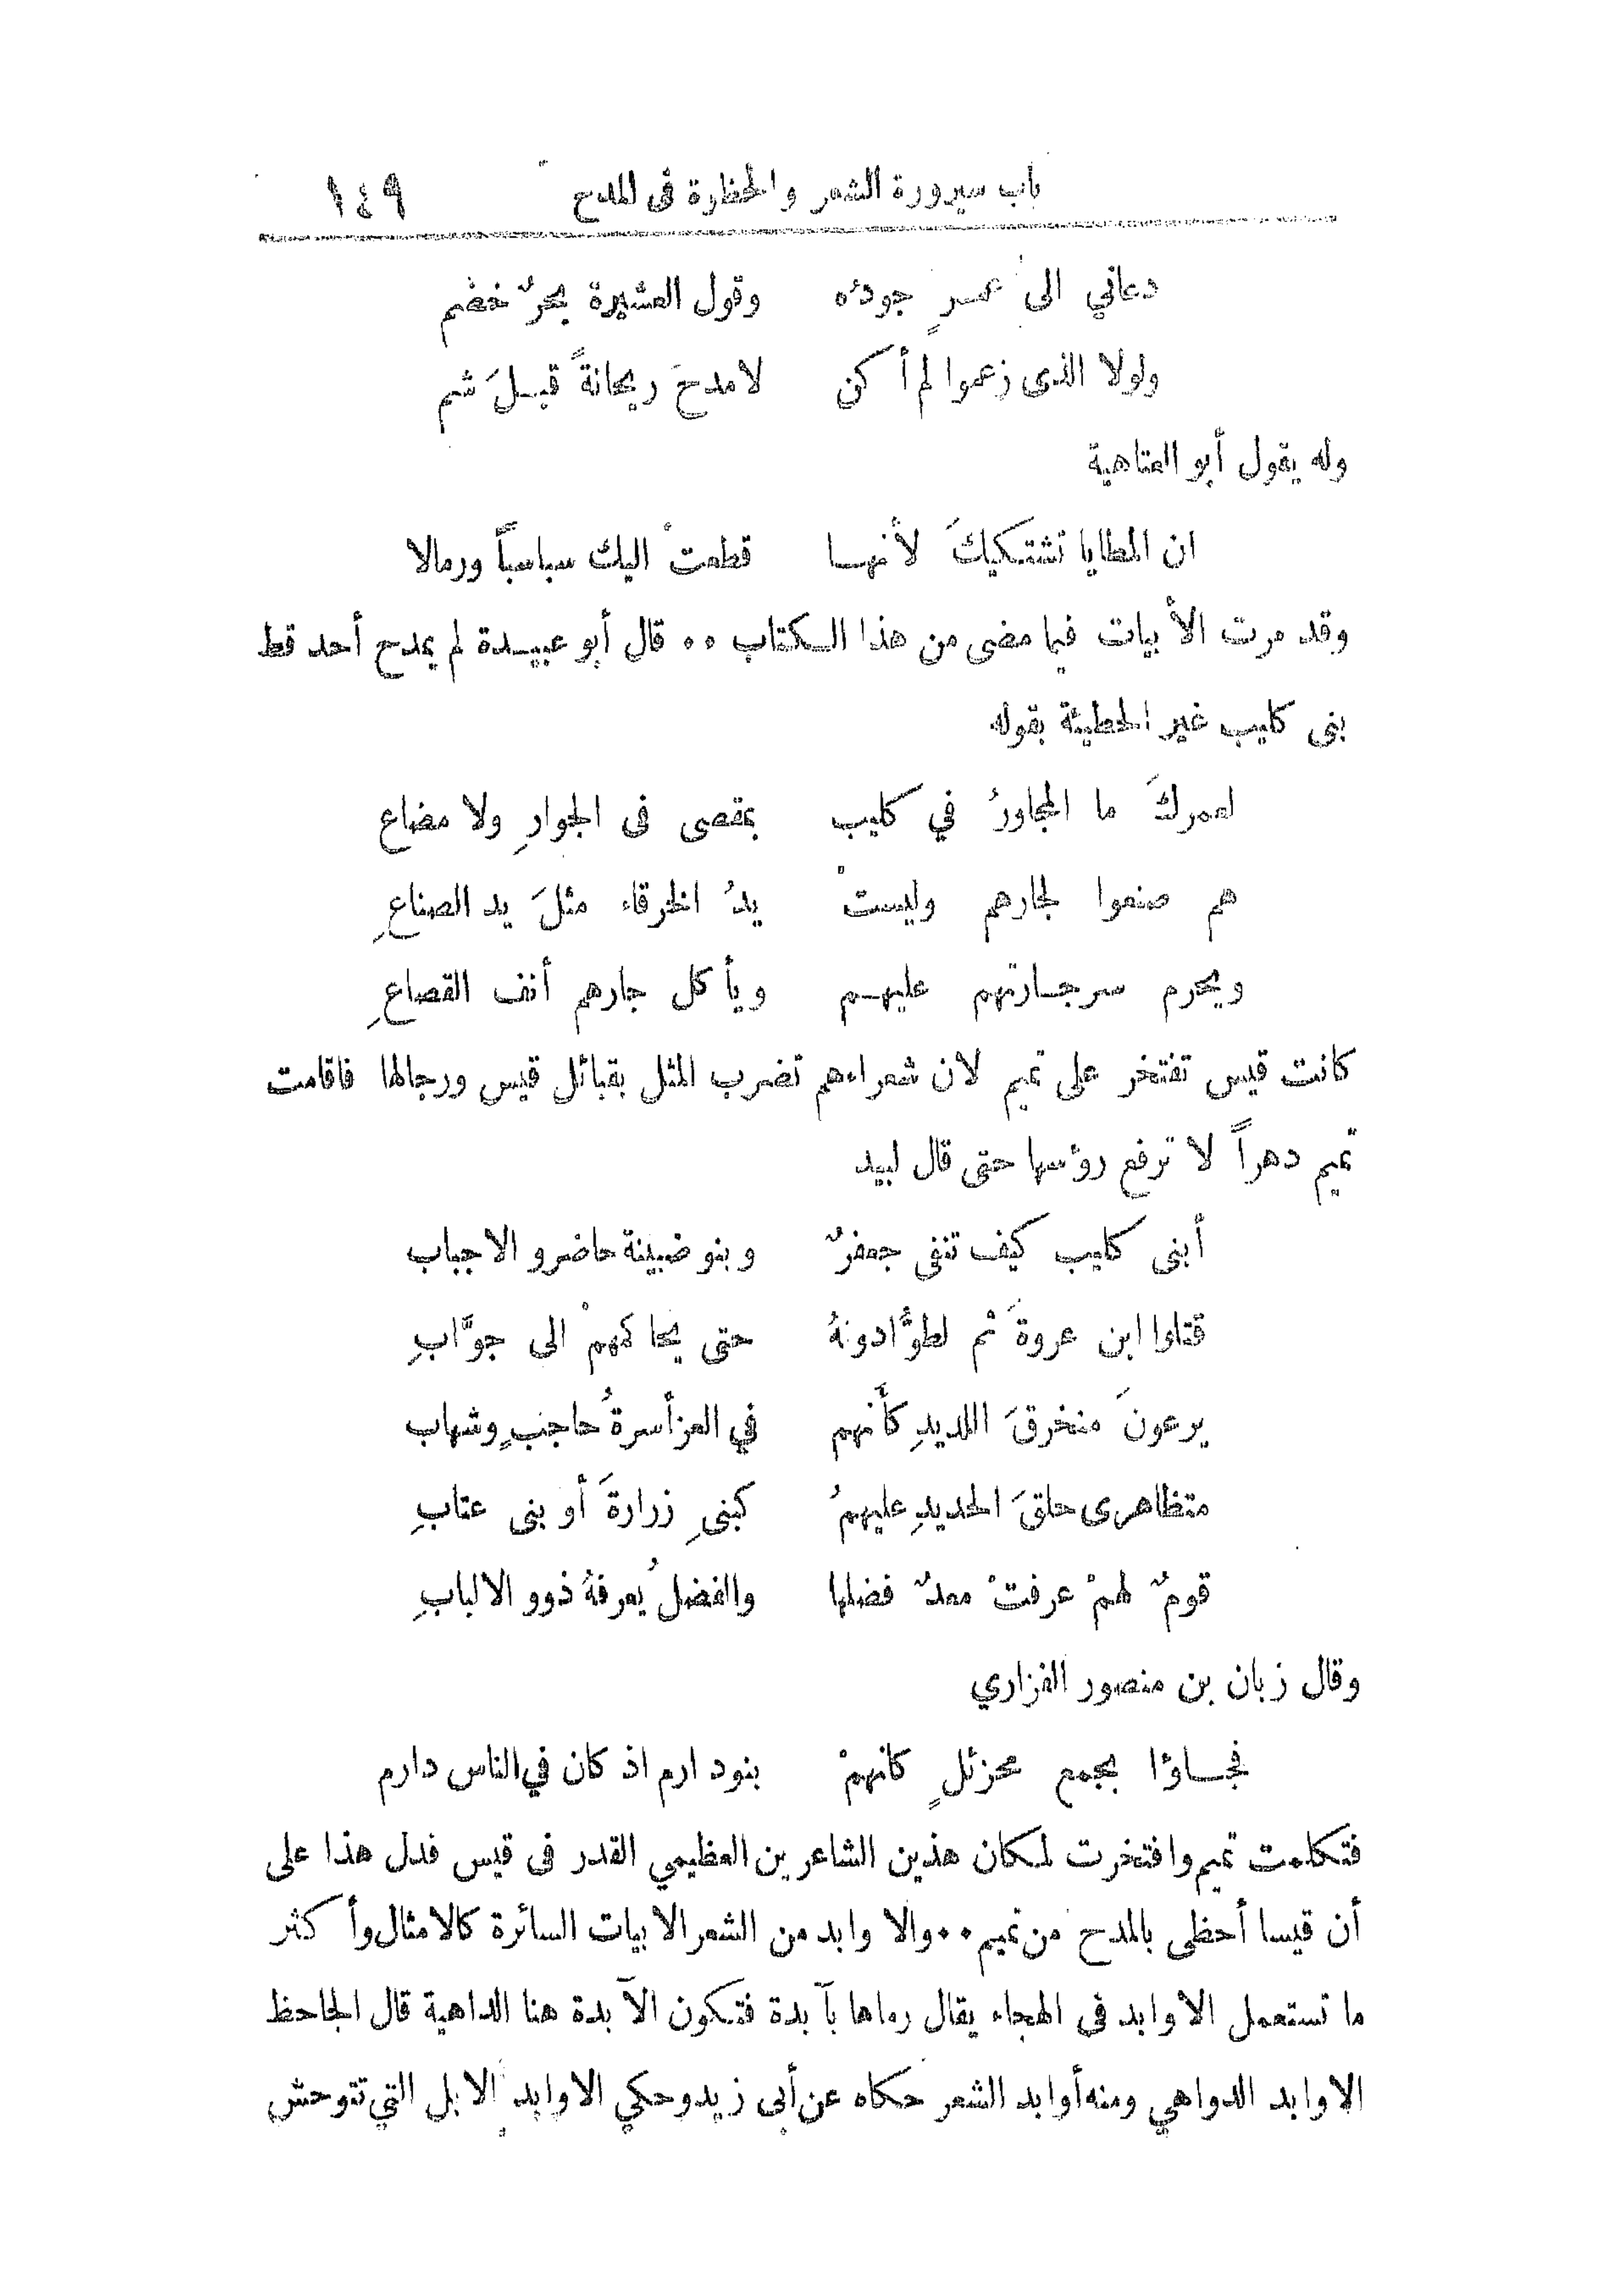 باب سيرورة الشعر والحظارة فى المدح ١٤٩
دعاني الى عمرٍ جودُه وقول العشيرة بحرٌ خضم
ولولا الذى زعموا لم أكن لامدحَ ريحانةً قبلَ شم
وله يقول أبو العتاهية
ان المطايا تشتكيكَ لأنها قطعتْ اليك سباسباً ورمالا
وقد مرت الأبيات فيما مضى من هذا الكتاب ٠٠ قال أبو عبيدة لم يمدح أحد قط
بنى كليب غير الحطيئة بقوله
لعمركَ ما المجاورُ في كليب بمقصى فى الجوارِ ولا مضاع
هم صنعوا لجارهم وليستْ يدُ الخرقاء مثلَ يد الصناعِ
ويحرم سر جارتهم عليهم ويأكل جارهم أنف القصاعِ
كانت قيس تفتخر على تميم لان شعراءهم تضرب المثل بقبائل قيس ورجالها فاقامت
تميم دهراً لا ترفع رؤسها حتى قال لبيد
أبنى كليب كيف تنفى جعفرٌ وبنو ضبينة حاضرو الاجباب
قتلوا ابن عروةَ ثم لطوُّا دونهُ حتى يحاكمهمْ الى جوَّابِ
يرعونَ منخرقَ اللديدِ كأنهم في العز أسرةُ حاجبٍ وشهاب
متظاهرى حلقَ الحديدِ عليهمُ كبنىِ زرارةَ أو بنى عتابِ
قومٌ لهمْ عرفتْ معدٌ فضلها والفضلُ يعرفهُ ذوو الالبابِ
وقال زبان بن منصور الفزاري
فجاؤا بجمع محزئلٍ كانهمْ بنو دارم اذ كان في الناس دارم
فتكلمت تميم وافتخرت لمكان هذين الشاعرين العظيمي القدر فى قيس فدل هذا على
أن قيسا أحظى بالمدح من تميم ٠٠ والاوابد من الشعر الابيات السائرة كالامثال وأكثر
ما تستعمل الاوابد فى الهجاء يقال رماها بآبدة فتكون الآبدة هنا الداهية قال الجاحظ
الاوابد الدواهي ومنه أوابد الشعر حكاه عن أبى زيد وحكي الاوابد الابل التي تتوحش